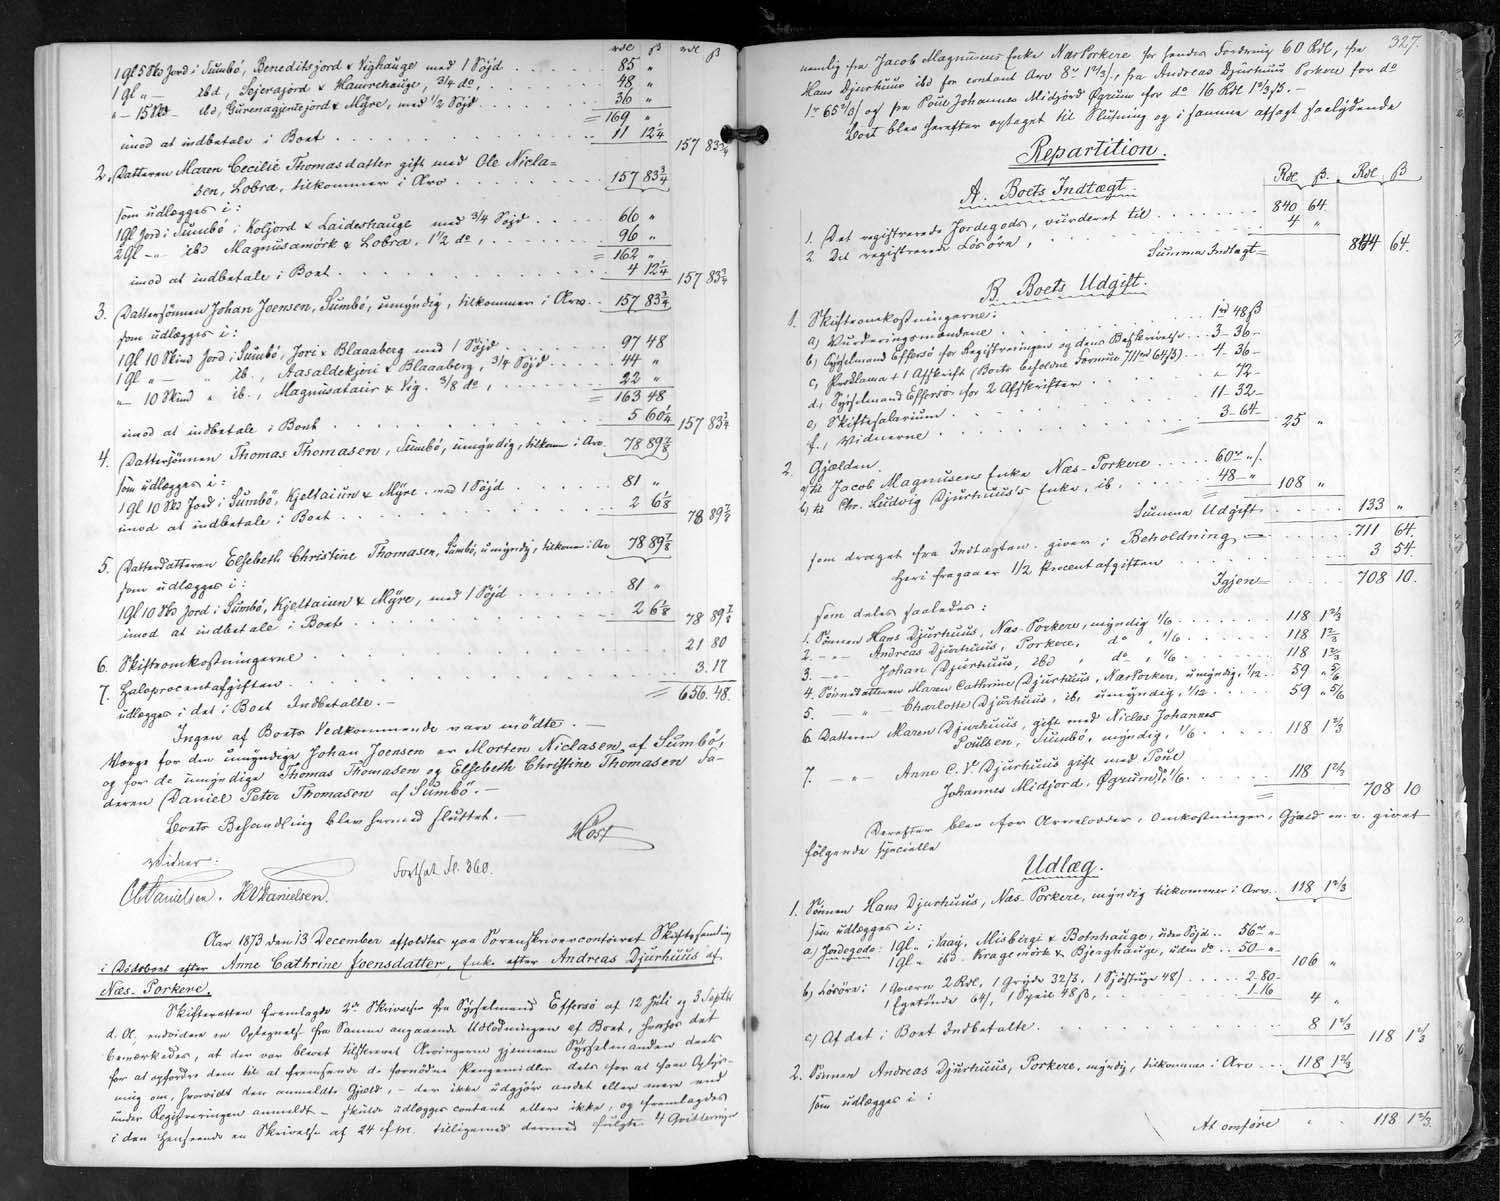 rdl ß rdl ß
1 Gl 5 Sks Jord i Sumbö, Beneditsjord & Vighauge med 1 Söjd 85 "
1 Gl " — ibd, Sojerajord & Hamrehauge, 3/4 do, 48 "
" — 15 Sks — ibd, Gurenagjertejord & Myre, med 1/2 Söjd 36 "
= 169 "
imod at indbetale i Boet 11 12 1/4 157 83 3/4
2. Datteren Maren Cecilie Thomasdatter gift med Ole Nicla=
sen, Lobra, tilkommer i Arv 157 83 3/4
som udlægges i:
1 Gl Jord i Sumbö i Koljord & Laideshauge med 3/4 Söjd 66 "
2 Gl — " ibd Magnusamörk & Lobra, 1 1/2 do, 96 "
= 162 "
imod at indbetale i Boet 4 12 1/4 157 83 3/4
3. Dattersönnen Johan Joensen, Sumbö, umyndig, tilkommer i Arv 157 83 3/4
som udlægges i:
1 Gl 10 Skind Jord i Sumbö, Jori & Blaaaberg med 1 Söjd 97 48
1 Gl " — " ib., Aasaldekjöri & Blaaaberg, 3/4 Söjd 44 "
" — 10 Skind " ib., Magnusataiir & Vig. 3/8 do, 22 "
= 163 48
imod at indbetale i Boet 5 60 1/4 157 83 3/4
4. Dattersönnen Thomas Thomasen, Sumbö, umyndig, tilkomm i Arv 78 89 7/8
som udlægges i:
1 Gl 10 Sks Jord i Sumbö, Kjeltaiun & Myre, med 1 Söjd 81 "
imod at indbetale i Boet 2 6 1/8 78 89 7/8
5. Datterdatteren Elsebeth Christine Thomasen, Sumbö, umyndig, tilkomm i Arv 78 89 7/8
som udlægges i:
1 Gl 10 Sks Jord i Sumbö, Kjeltaiun & Myre, med 1 Söjd 81 "
imod at indbetale i Boet 2 6 1/8 78 89 7/8
6. Skifteomkostningerne 21 80
7. Halvprocentafgiften 3. 17
udlægges i det i Boet Indbetalte. — = 656. 48.
Ingen af Boets Vedkommende vare mödte. —
Værge for den umyndige Johan Joensen er Morten Niclasen af Sumbö,
og for de umyndige Thomas Thomasen og Elsebeth Christine Thomasen Fa-
deren Daniel Peter Thomasen af Sumbö. —
Boets Behandling blev hermed sluttet. —
Höst
Vidner:
Fortsat Fl. 360.
O C Danielsen. H V Danielsen.
Aar 1873 den 13 December afholdtes paa Sorenskrivercontoiret Skiftesamling
i Dödsboet efter Anne Cathrine Joensdatter, Enke efter Andreas Djurhuus af
Næs-Porkere.
Skifteretten fremlagde 2de Skrivelser fra Sysselmand Effersö af 12 Juli og 3 Septbr
d. A, endvidere en Optegnelse fra Samme angaaende Udlodningen af Boet, hvorhos det
bemærkedes, at der var blevet tilskrevet Arvingerne gjennem Sysselmanden deels
for at opfordre dem til at fremsende de fornödne Pengemidler, dels for at faae Oplys-
ning om, hvorvidt den anmeldte Gjæld, — der ikke udgjör andet eller mere end
under Registreringen anmeldt — skulde udlægges contant eller ikke, og fremlagdes
i den Henseende en Skrivelse af 24 f. M. tilligemed dermed fulgte 4 Qvitteringer
327.
nemlig fra Jacob Magnusens Enke Næs Porkere for hendes Fordring 60 Rdl, fra
Hans Djurhuus ibd for contant Arv 8 rdl 1 2/3 ß, fra Andreas Djurhuus Porkere for do
1 rd 65 2/3 ß og fra Poul Johannes Midjord Øgrum for do 16 Rdl 1 2/3 ß. —
Boet blev herefter optaget til Slutning og i samme afsagt saalydende
Repartition.
Rdl ß. Rdl ß
A. Boets Indtægt.
1. Det registrerede Jordegods, vurderet til 840 64
2 Det registrerede Lösöre, 4 "
Summa Indtægt = 844 64.
B. Boets Udgift.
1. Skifteomkostningerne:
a) Vurderingsmændene 1 rd 48 ß
b) Sysselmand Effersö for Registreringen og dens Beskrivelse 3 — 36 —
c, Proklama + 1 Afskrift (Boets beholdne Formue 711 rd 64 ß) 4 — 36 —
d, Sysselmand Effersö for 2 Afskrifter " — 72 —
e) Skiftesalarium 11 — 32 —
f., Vidnerne 3 — 64 — 25 "
2. Gjælden.
a) til Jacob Magnusen Enke Næs-Porkere 60 rd " ß.
b, til Chr. Ludvig Djurhuus's Enke, ib, 48 — " 108 "
Summa Udgift 133 "
som draget fra Indtægten giver i Beholdning = 711 64.
Heri fragaaer 1/2 Procentafgiften 3 54.
Igjen = 708 10.
som deles saaledes:
1. Sönnen Hans Djurhuus, Næs-Porkere, myndig 1/6 118 1 2/3
2. — " — Andreas Djurhuus, Porkere, do, 1/6 118 1 2/3
3. — " — Johan Djurhuus, ibd, do, 1/6 118 1 2/3
4. Sönnedatteren Maren Cathrine Djurhuus, Næs Porkere, umyndig, 1/12 59 " 5/6
5. — " — Charlotte Djurhuus, ib, umyndig, 1/12 59 " 5/6
6. Datteren Maren Djurhuus, gift med Niclas Johannes
Poulsen, Sumbö, myndig, 1/6 118 1 2/3
7. — " — Anne C. V. Djurhuus gift med Poul
Johannes Midjord, Øgrum, do 1/6 118 1 2/3
= 708 10
Derefter blev for Arvelodder, Omkostninger, Gjæld m. v. givet
fölgende specielle
Udlæg.
1. Sönnen Hans Djurhuus, Næs-Porkere, myndig tilkommer i Arv 118 1 2/3
som udlægges i:
a) Jordegods: 1 Gl. " i Vaag, Misbergi & Botnhauge, uden Söjd 56 rd "
1 Gl. " ibd. Kragemörk & Bjerghauge, uden do 50 — " 106 "
b, Lösöre: 1 Qværn 2 Rdl, 1 Gryde 32 ß, 1 Sjöstuge 48 ß 2. 80 —
1 Egetönde 64 ß, 1 Speil 48 ß, 1. 16 4 "
c) Af det i Boet Indbetalte 8 1 2/3 118 1 2/3
2. Sönnen Andreas Djurhuus, Porkere, myndig, tilkommer i Arv 118 1 2/3
som udlægges i:
At omföre 118 1 2/3.